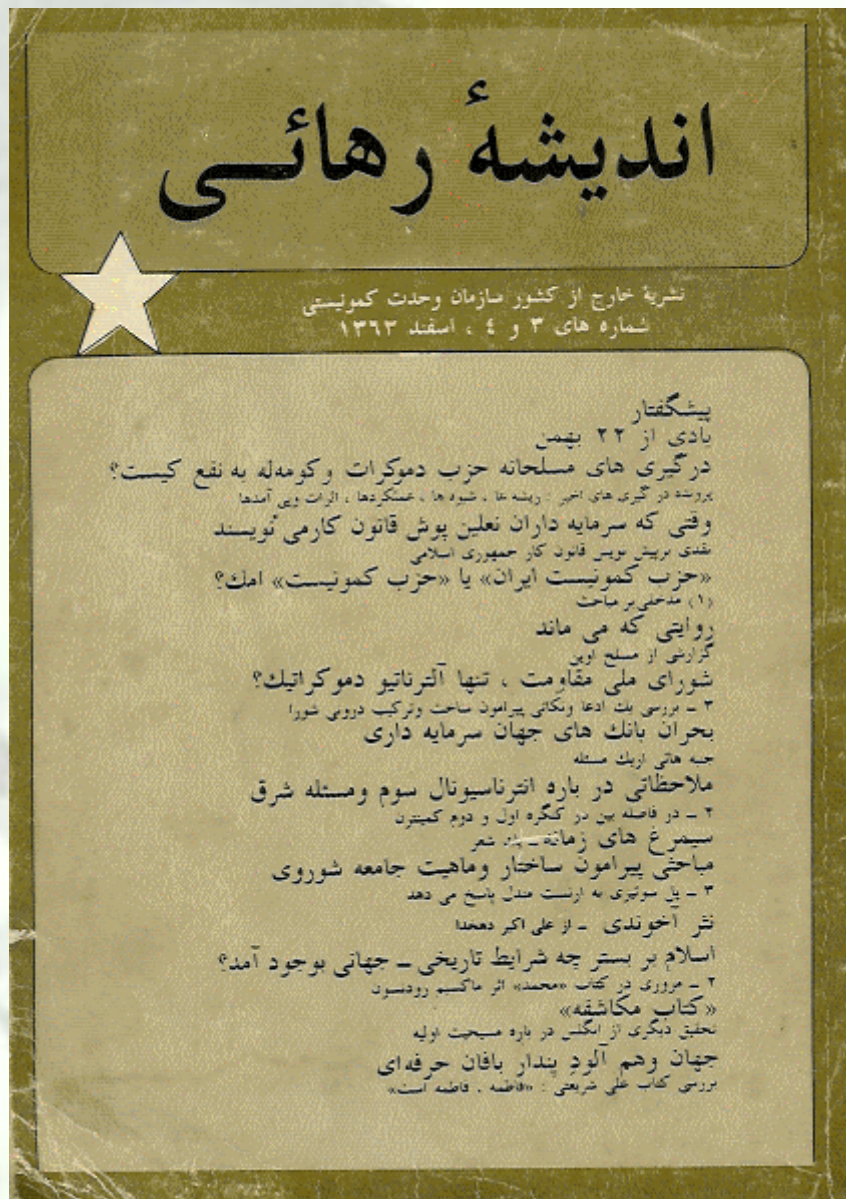 اندیشهٔ رهائی
نشریهٔ خارج از کشور سازمان وحدت کمونیستی
شماره های ۳ و ٤ ، اسفند ۱۳٦۳
پیشگفتار
یادی از ۲۲ بهمن
درگیری های مسلحانه حزب دموکرات وکومه‌له به نفع کیست؟
پرونده درگیری های اخیر : ریشه ها ، شیوه ها ، عملکردها ، اثرات وپی آمدها
وقتی که سرمایه داران نعلین پوش قانون کارمی نویسند
نقدی برپیش نویس قانون کار جمهوری اسلامی
«حزب کمونیست ایران» یا «حزب کمونیست» امك؟
(۱) مدخلی بر مباحث
روایتی که می ماند
گزارشی از مسلخ اوین
شورای ملی مقاومت ، تنها آلترناتیو دموکراتیك؟
۳ ــ بررسی یك ادعا ونکاتی پیرامون ساخت وترکیب درونی شورا
بحران بانك های جهان سرمایه داری
جنبه هائی ازیك مسئله
ملاحظاتی در باره انترناسیونال سوم ومسئله شرق
۲ ــ در فاصله بین دو کنگره اول و دوم کمینترن
سیمرغ های زمانه ــ یك شعر
مباحثی پیرامون ساختار وماهیت جامعه شوروی
۳ ــ پل سوئیزی به ارنست مندل پاسخ می دهد
نثر آخوندی ــ از علی اکبر دهخدا
اسلام بر بستر چه شرایط تاریخی ــ جهانی بوجود آمد؟
۲ ــ مروری در کتاب «محمد» اثر ماکسیم رودنسون
«کتاب مکاشفه»
تحقیق دیگری از انگلس در باره مسیحیت اولیه
جهان وهم آلودِ پندار بافان حرفه‌ای
بررسی کتاب علی شریعتی : «فاطمه ، فاطمه است»